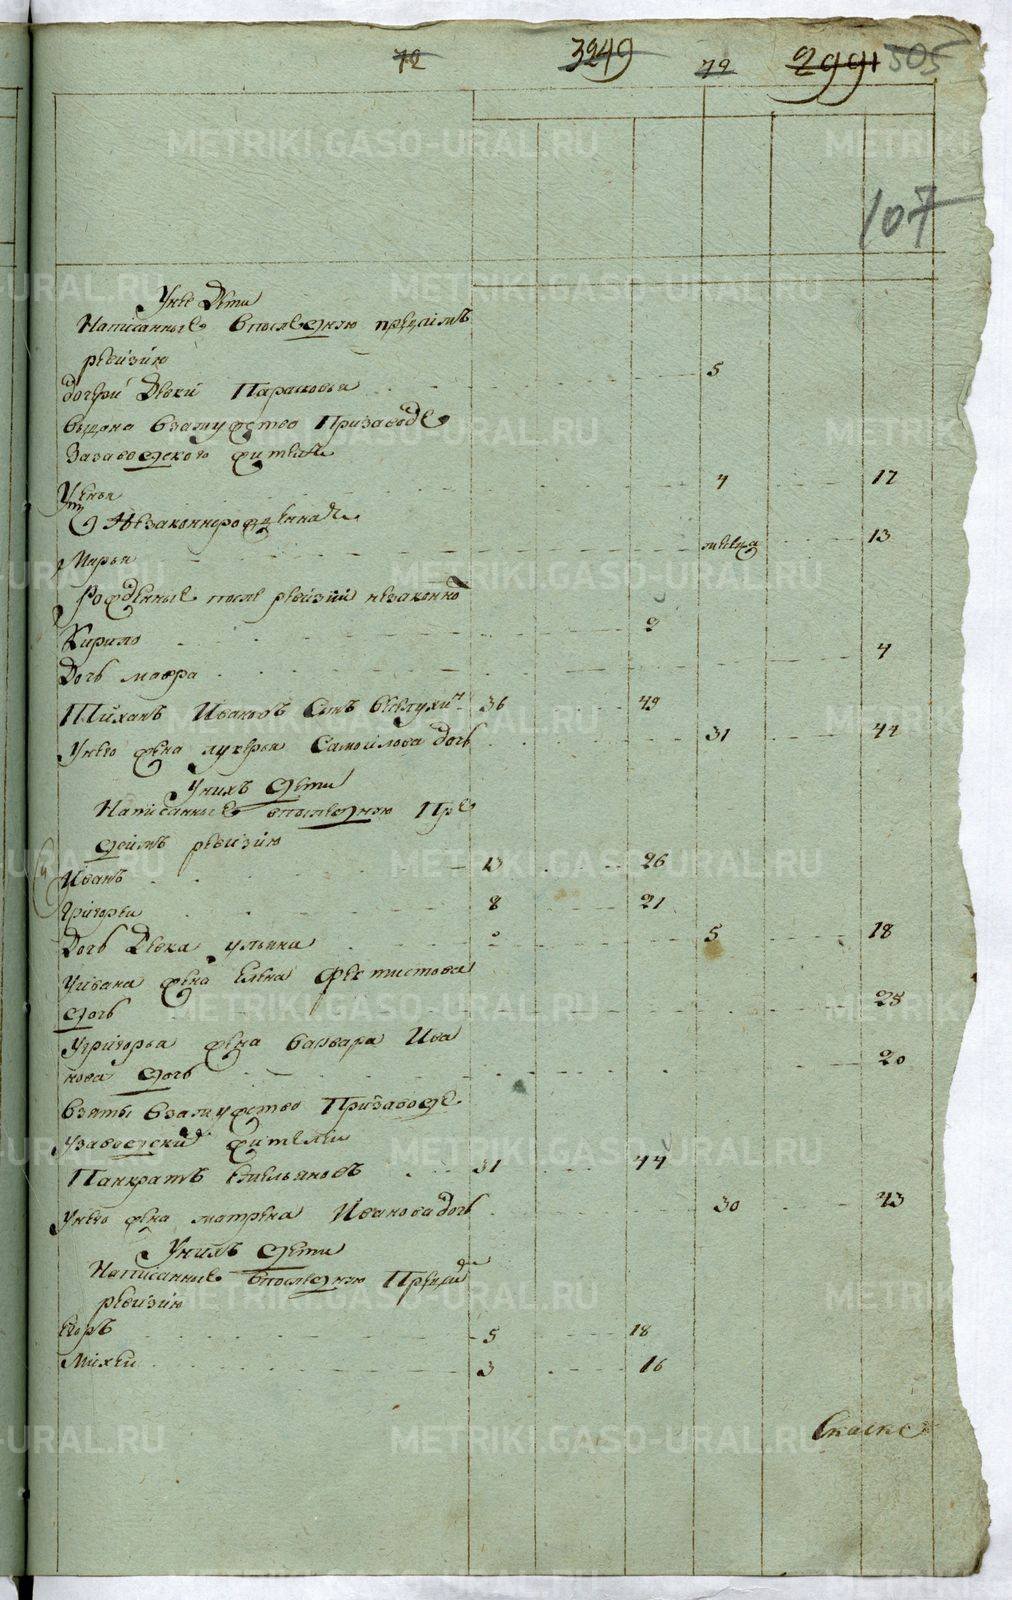 72 3249 72 2991 505
107
У нее Дети
Написанные в последнюю пред симъ
ревизию
дочери Девки Парасковья 5
выдана в замужство При заводе
За заводского жителя
Уенья 4 17
Незаконнорожденная
Марья месяца 13
Рожденные после ревизии незаконно
Кирило 9
Дочь мавра 4
Иванов Сынъ 36 49
У него жена лукерья Самойлова дочь 31 44
У нихъ дети
Написанные в последнюю Пре
д симъ ревизию
Иванъ 13 26
Григорей 8 21
Дочь Девка ульяна 5 18
У Ивана жена Елена Феклистова
дочь 25
У Григорья жена Варвара Ива
нова дочь 20
Взяты в замужство При заводе
У заводских жителей
Панкратъ Емельяновъ 31 44
У него жена матрена Иванова дочь 30 43
У нихъ дети
Написанные в последнюю Пред
ревизию
Егоръ 5 18
Михей 3 16
Скаске
METRIKI.GASO-URAL.RU